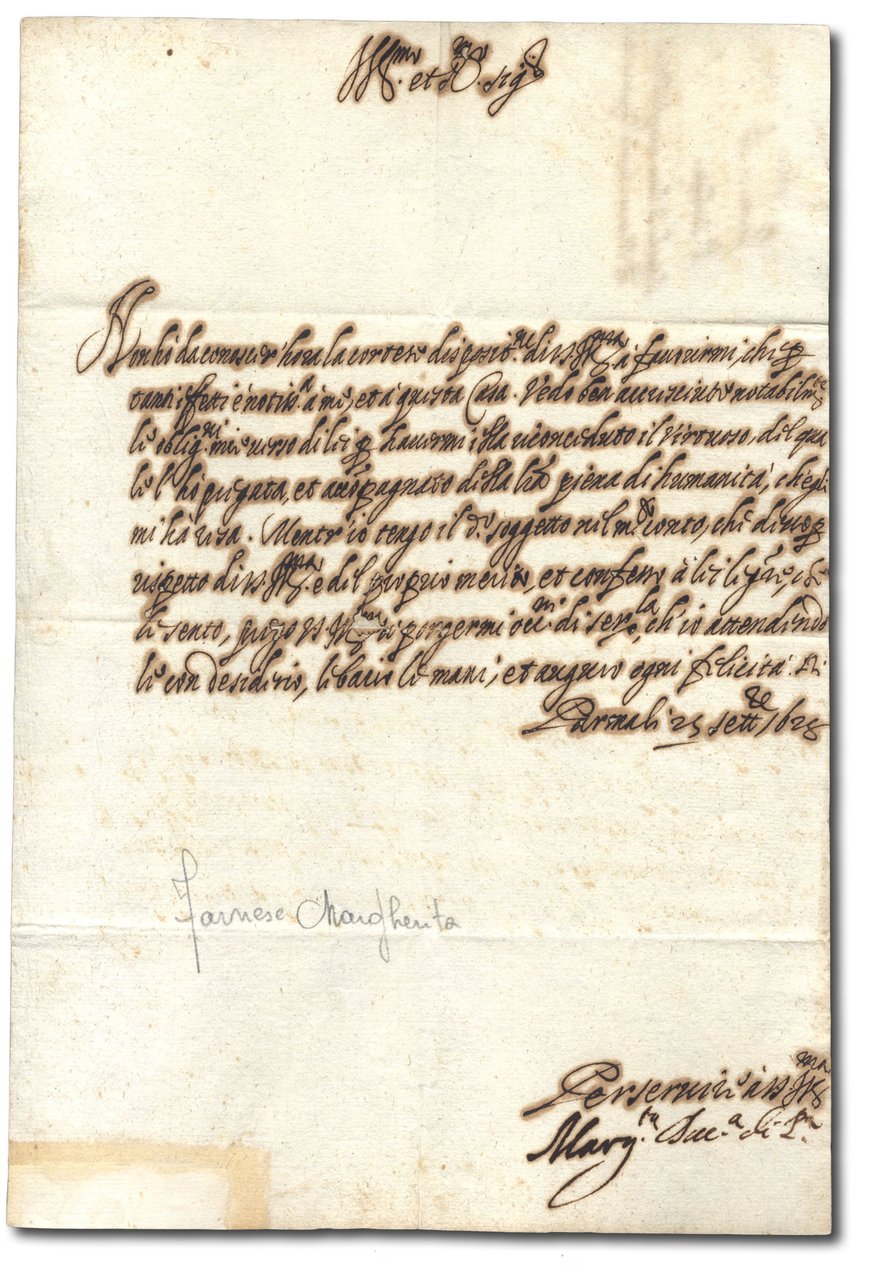 Ill.mo et R.mo sig.r
Non hò da conoscer' hora la cortese disposit.ne di VS Ill.ma à favorirmi, che per
tanti effetti è notiss.a à me, et à questa Casa. Vedo ben accresciute notabilm.te
le oblig.ni mie verso di lei per havermi ella riconceduto il Virtuoso, del qua
le l' hò pregata, et accompagnato dalla piena di humanità, ch' egli
mi hà resa. Mentr' io tengo il d.o soggetto nel m.o conto, che devo per
rispetto di VS Ill.ma e del proprio merito, et confesso à lei le gr.e, che
le sento, prego VS Ill.ma à porgermi occ.ni di ser.la, ch' io attendendo
le con desiderio, le bacio le mani, et auguro ogni felicità. Di
Parma li 25 sett.re 1625
Farnese Margherita
Per servire à VS Ill.ma
Marg.ta Duc.a di P.a